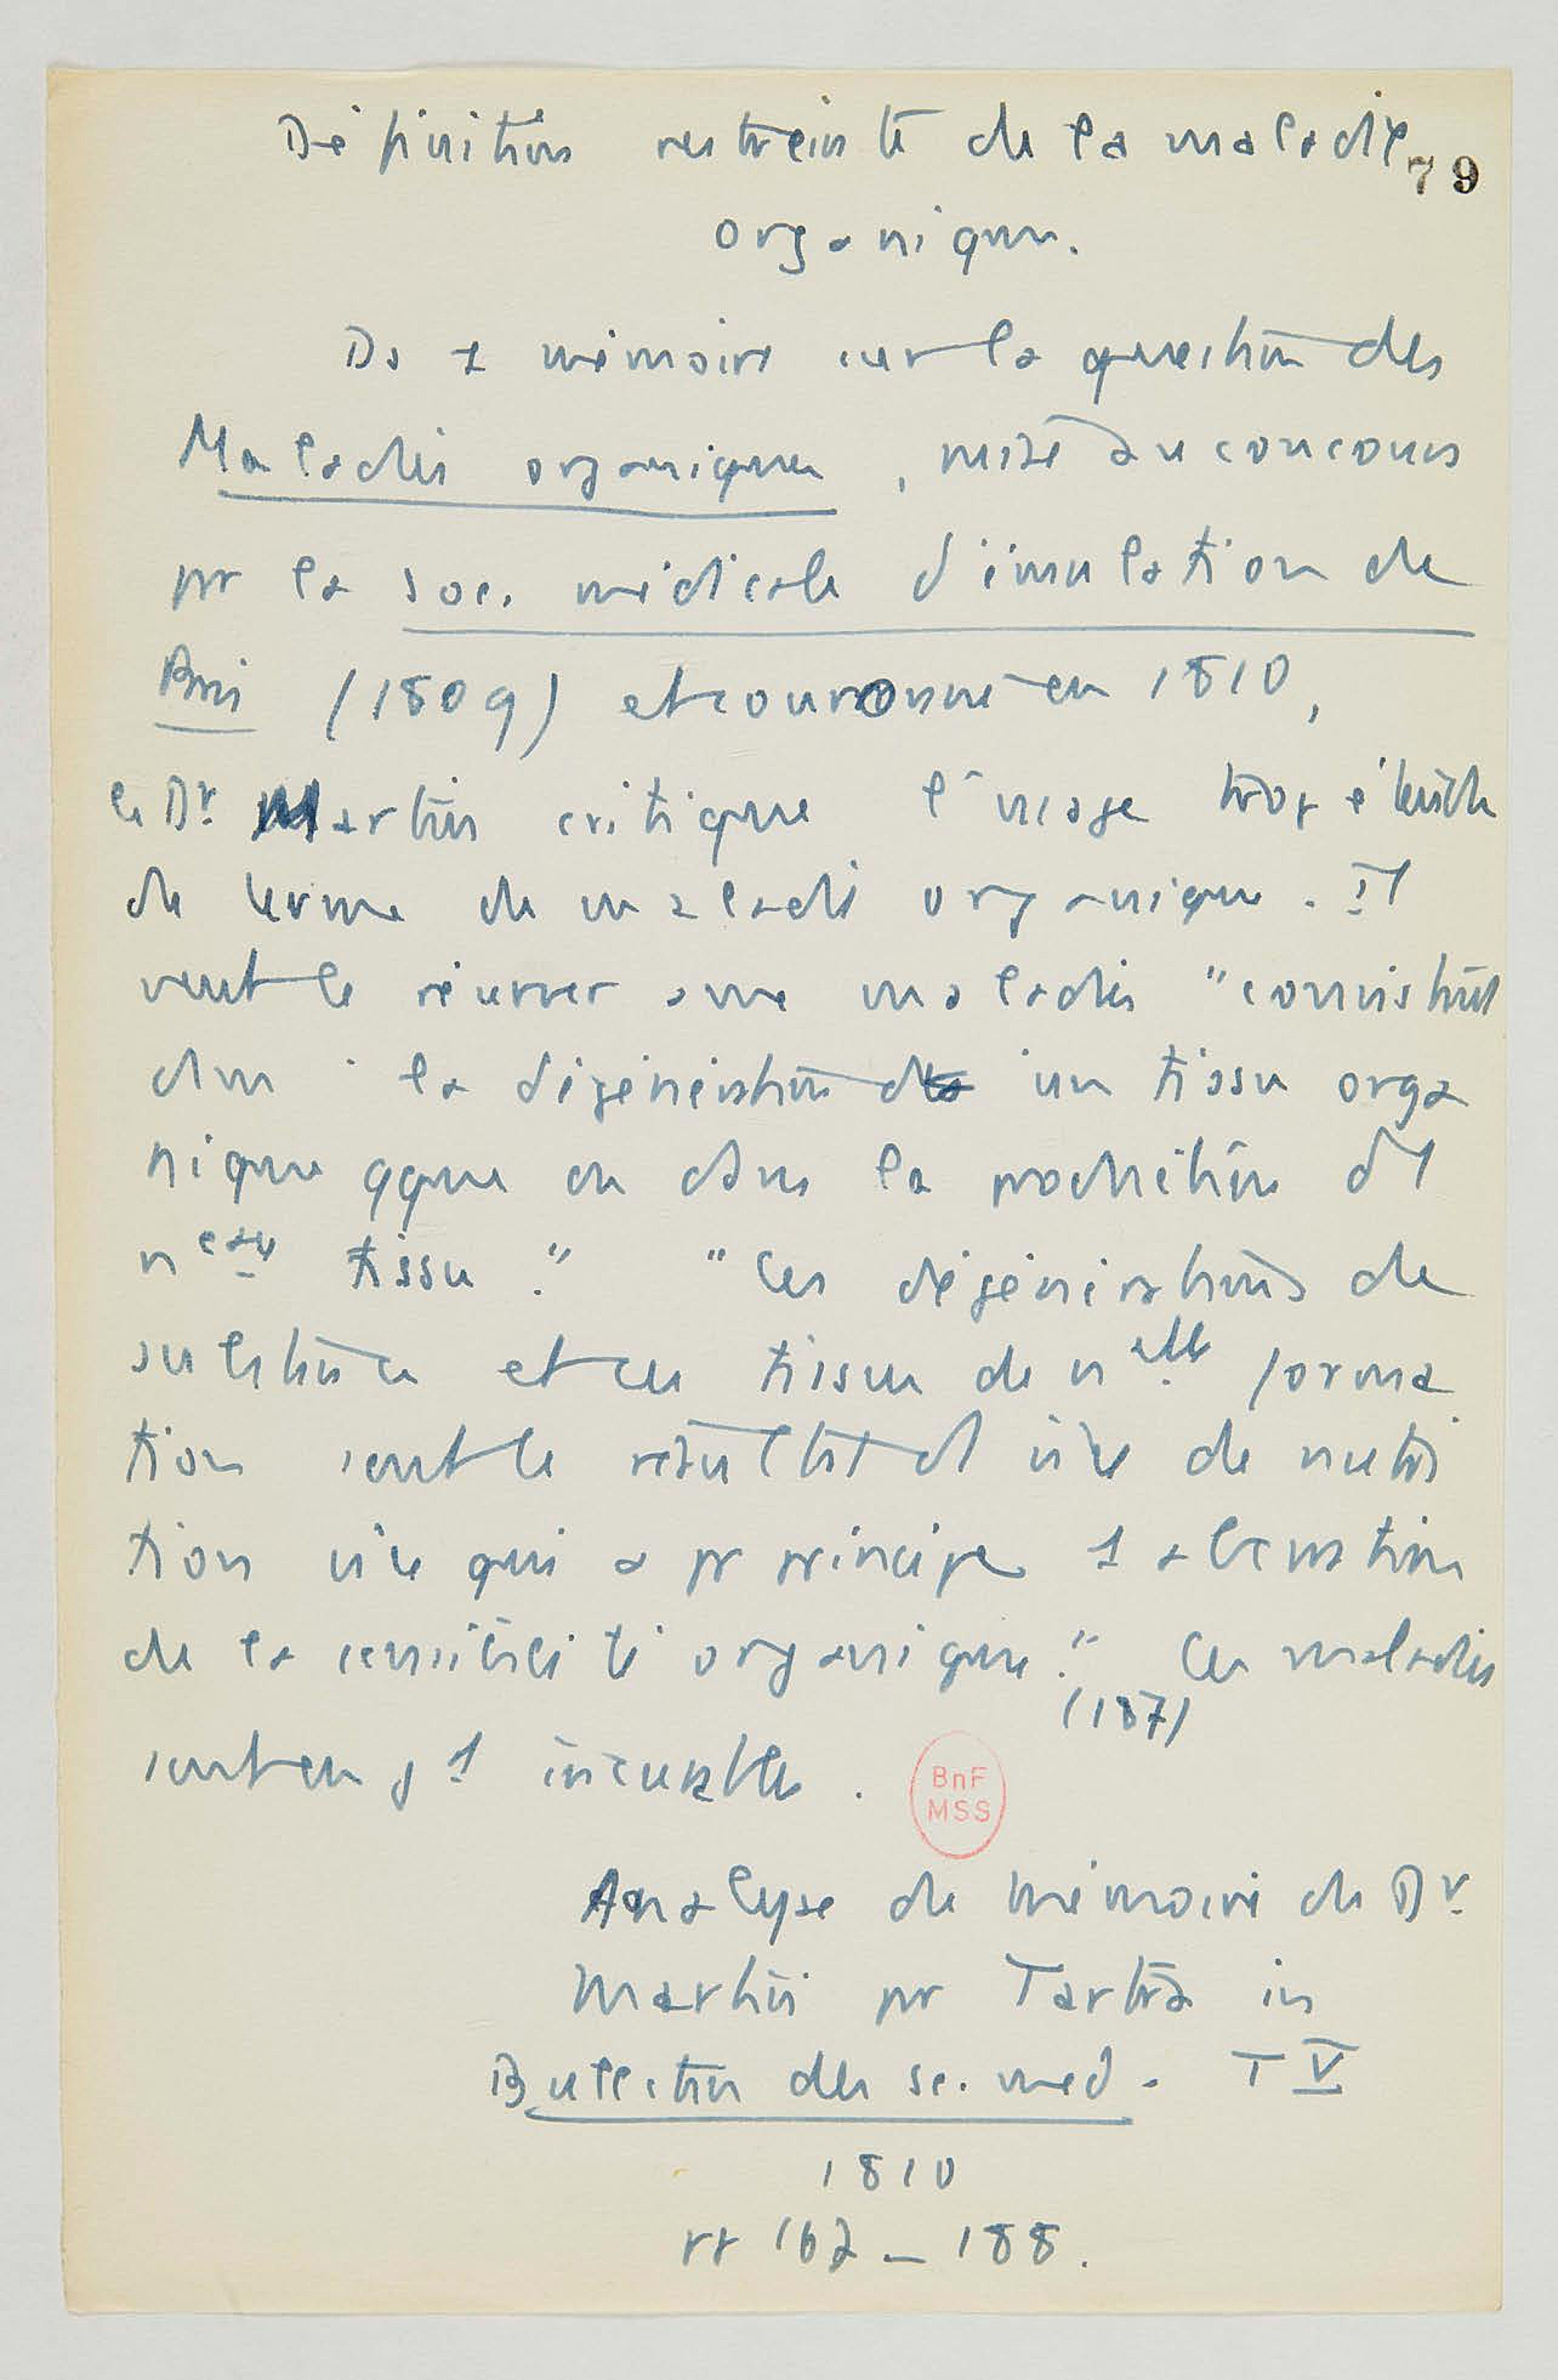 Définition restreinte de la maladie
79
organique.
Ds 1 mémoire sur la question des
Maladies organiques, mise au concours
pr la Soc. médicale d'émulation de
Paris (1809) et couronné en 1810,
le Dr Martin critique l'usage trop étendu
du terme de maladie organique. Il
veut le réserver aux maladies "consistant
dans la dégénération d'un tissu orga
nique qque ou dans la production d'1
neau tissu." "Ces dégénérations de
substance et ces tissus de nelle forma
tion sont le résultat d'1 de nutri
tion qui a pr principe 1 altération
de la sensibilité organique." Ces maladies
(187)
sont en gl incurables.
BnF
MSS
Analyse du mémoire du Dr
Martin par Tartra in
Bulletin des sc. med. T V
1810
pp 162-188.